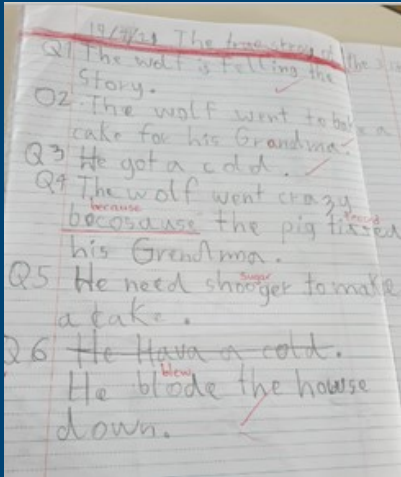 The true story of the
Q1 The wolf is telling the
story.
Q2. The wolf went to bake a
cake for his Grandma.
Q3 He got a cold.
Q4 The wolf went crazy
because
becosause the pig
his Grendma.
sugar
Q5 He need shooger to make
a cake.
Q6 He Hava a cold.
blew
He blode the howse
down.